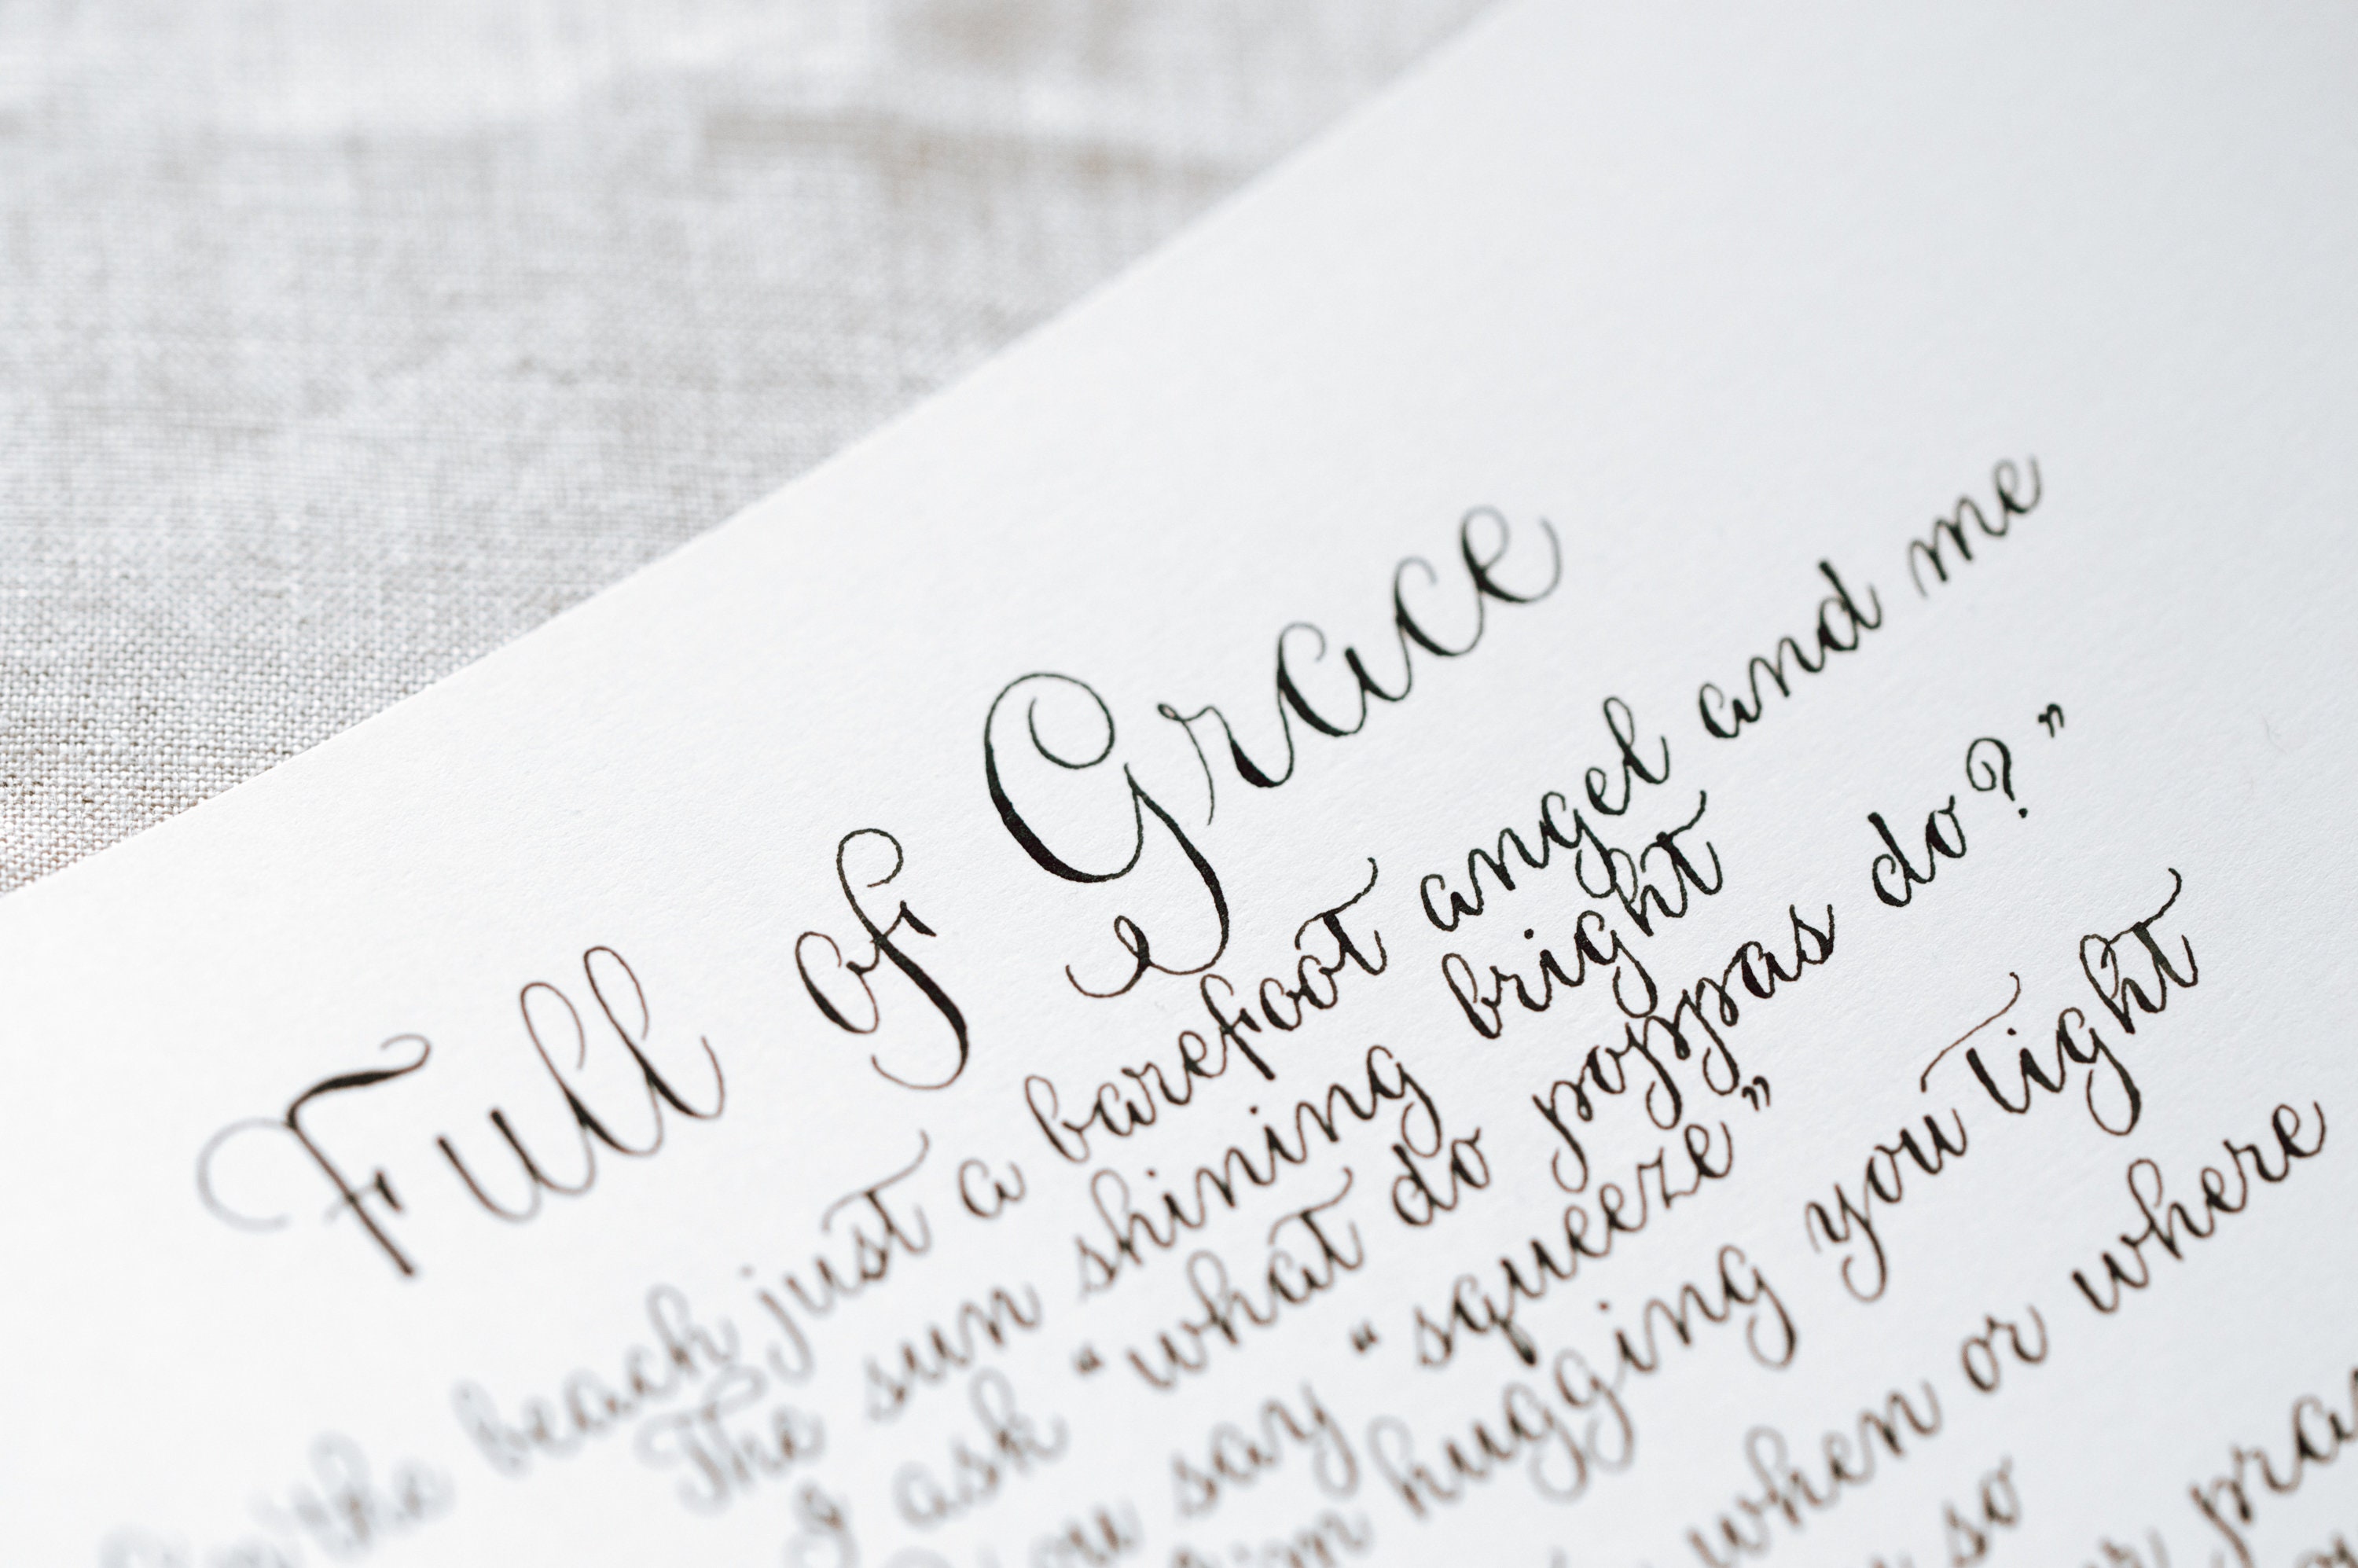 Full of Grace
the beach just a barefoot angel and me
The sun shining bright
I ask “what do poppas do?”
you say “squeeze”
hugging you tight
when or where
so